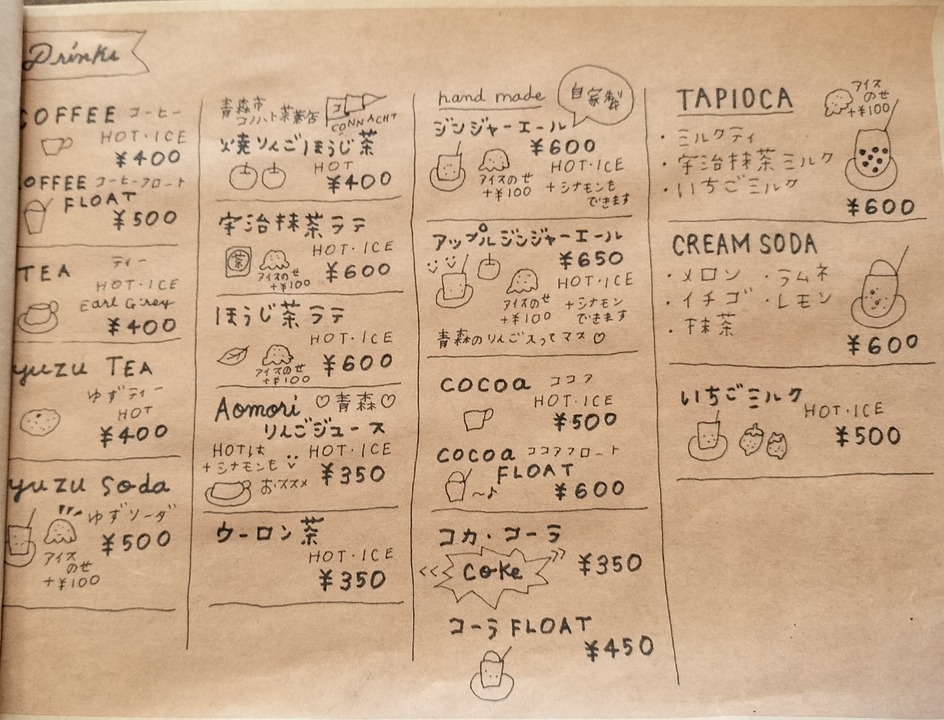 Drinks
COFFEE コーヒー
HOT・ICE
¥400
COFFEE コーヒーフロート
FLOAT
¥500
TEA ティー
HOT・ICE
Earl Grey
¥400
yuzu TEA
ゆずティー
HOT
¥400
yuzu Soda
ゆずソーダ
¥500
アイス
のせ
+¥100
青森市
コノハト茶葉店
CONNACHT
焼りんごほうじ茶
HOT
¥400
宇治抹茶ラテ
茶
HOT・ICE
アイスのせ
+¥100
¥600
ほうじ茶ラテ
HOT・ICE
アイスのせ
+¥100
¥600
Aomori ♡青森♡
りんごジュース
HOTは HOT・ICE
+シナモンも
おススメ
¥350
ウーロン茶
HOT・ICE
¥350
hand made
自家製
ジンジャーエール
¥600
アイスのせ
+¥100
HOT・ICE
+シナモンも
できます
アップルジンジャーエール
¥650
HOT・ICE
アイスのせ
+¥100
+シナモン
できます
青森のりんご入ってマス♡
COCOA ココア
HOT・ICE
¥500
COCOA ココアフロート
FLOAT
¥600
コカ・コーラ
Coke
¥350
コーラ FLOAT
¥450
TAPIOCA
アイス
のせ
+¥100
・ミルクティ
・宇治抹茶ミルク
・いちごミルク
¥600
CREAM SODA
・メロン ・ラムネ
・イチゴ ・レモン
・抹茶
¥600
いちごミルク
HOT・ICE
¥500